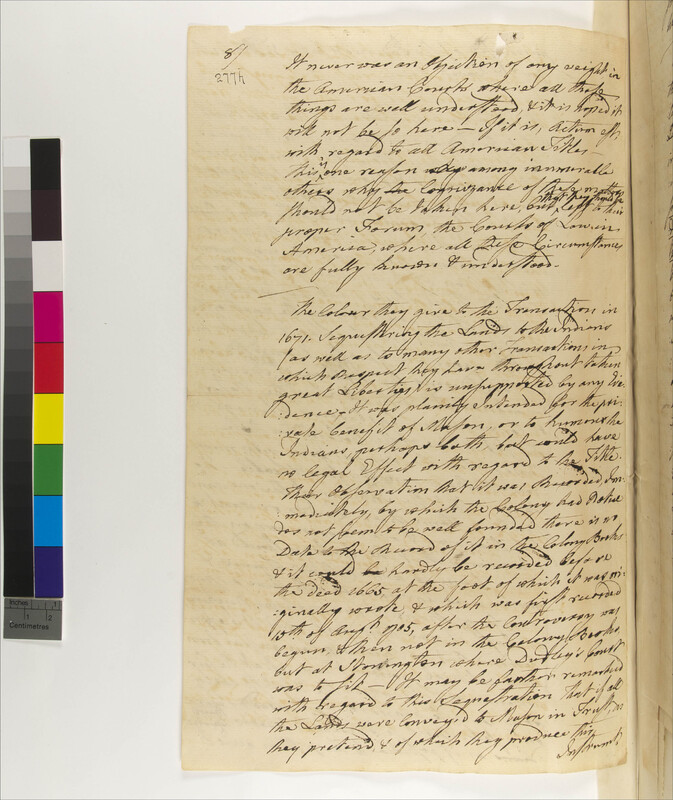 8/
277h
It never was an Objection of any weight in
the American Courts where all those
things are well understood, & it is hoped it
will not be so here — If it is, Actum est,
with regard to all American Titles —
this is one reason among innumerable
others why the Conuzance of these matters
should not be taken here, but that they should be left to their
proper Forum, the Courts of Law in
America, where all these Circumstances
are fully known & understood —
The Colour they give to the Transaction in
1671. Sequestring the Lands to the Indians
(as well as to many other Transactions in
which respect they have throughout taken
great Liberties) is unsupported by any Evi
:dence — It was plainly intended for the pri:
:vate benefit of Mason, or to humour the
Indians, perhaps both, but could have
no legal Effect with regard to the Title.
Their Observation that it was Recorded Im:
:mediately, by which the Colony had Notice
does not seem to be well founded there is no
Date to the Record of it in the Colony Books
& it could be hardly be recorded before
the deed 1665, at the foot of which it was ori:
:ginally wrote & which was first recorded
of Augt. 1705, after the Controversy was
begun, & then not in the Colony Books
but at Stonington where Dudley's Court
was to sit — It may be further remarked
with regard to this Sequestration, that if all
the Lands were Convey'd to Mason in Trust, as
they pretend, & of which they produce this
Instrumt.